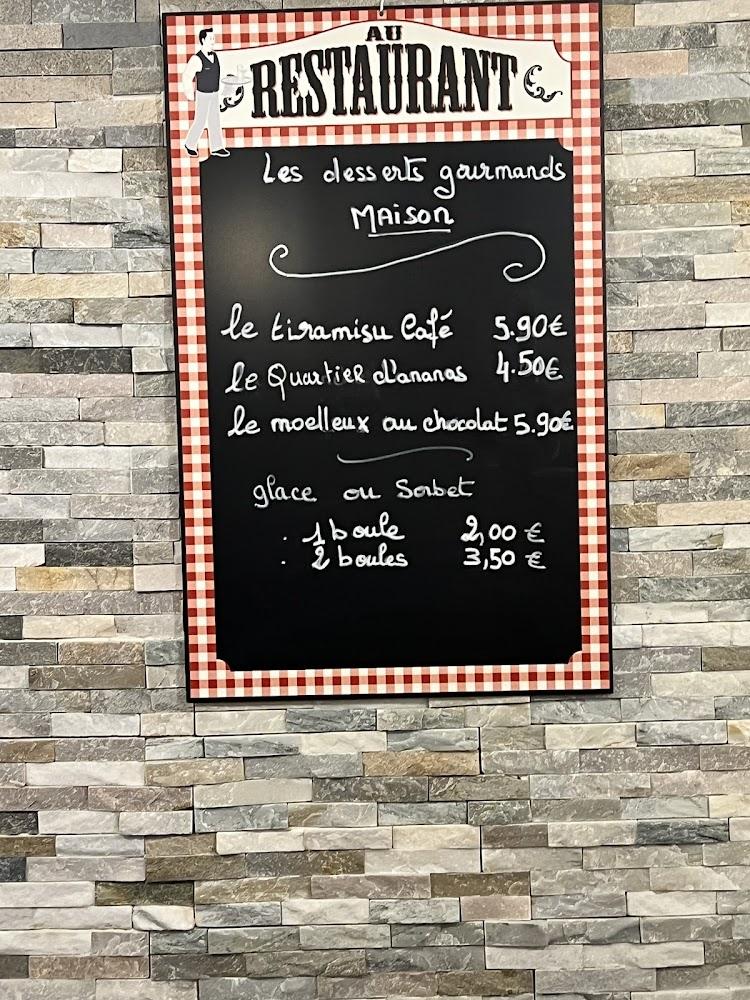 AU
RESTAURANT
Les desserts gourmands
MAison
le tiramisu Café 5.90€
le Quartier d'ananas 4.50€
le moelleux au chocolat 5.90€
glace ou Sorbet
. 1 boule 2,00 €
. 2 boules 3,50 €